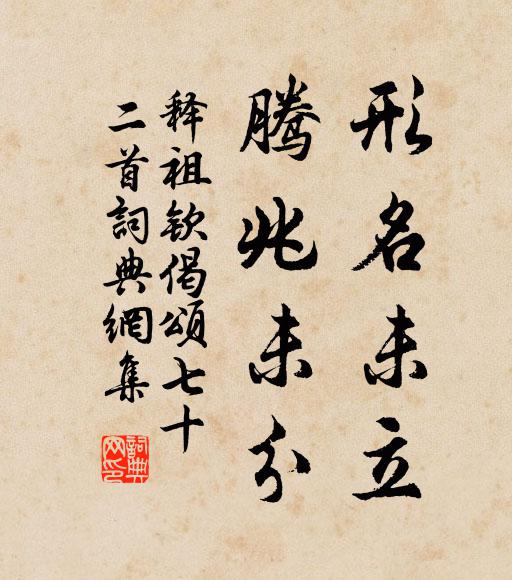 形名未立
腾兆未分
释祖钦偈頌七十
二首詞典網集
詞典
网印